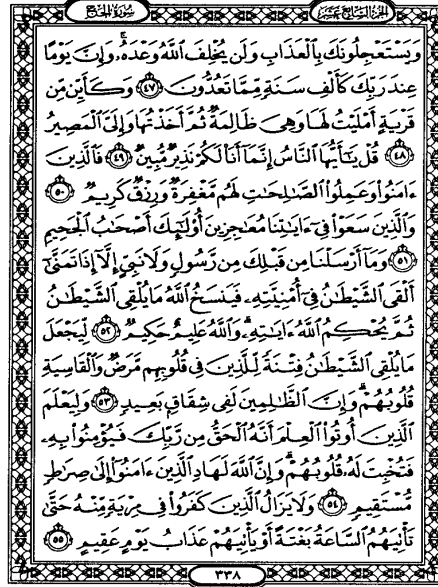 الجزء السابع عشر
سورة الحج
وَيَسْتَعْجِلُونَكَ بِالْعَذَابِ وَلَن يُخْلِفَ اللَّهُ وَعْدَهُۥ وَإِنَّ يَوْمًا
عِندَ رَبِّكَ كَأَلْفِ سَنَةٍ مِّمَّا تَعُدُّونَ ٤٧ وَكَأَيِّن مِّن
قَرْيَةٍ أَمْلَيْتُ لَهَا وَهِيَ ظَالِمَةٌ ثُمَّ أَخَذْتُهَا وَإِلَيَّ الْمَصِيرُ
٤٨ قُلْ يَٰٓأَيُّهَا النَّاسُ إِنَّمَآ أَنَا۠ لَكُمْ نَذِيرٌ مُّبِينٌ ٤٩ فَالَّذِينَ
ءَامَنُوا وَعَمِلُوا الصَّٰلِحَٰتِ لَهُم مَّغْفِرَةٌ وَرِزْقٌ كَرِيمٌ ٥٠
وَالَّذِينَ سَعَوْا فِىٓ ءَايَٰتِنَا مُعَٰجِزِينَ أُو۟لَٰٓئِكَ أَصْحَٰبُ الْجَحِيمِ
٥١ وَمَآ أَرْسَلْنَا مِن قَبْلِكَ مِن رَّسُولٍ وَلَا نَبِىٍّ إِلَّآ إِذَا تَمَنَّىٰٓ
أَلْقَى الشَّيْطَٰنُ فِىٓ أُمْنِيَّتِهِۦ فَيَنسَخُ اللَّهُ مَا يُلْقِى الشَّيْطَٰنُ
ثُمَّ يُحْكِمُ اللَّهُ ءَايَٰتِهِۦ وَاللَّهُ عَلِيمٌ حَكِيمٌ ٥٢ لِّيَجْعَلَ
مَا يُلْقِى الشَّيْطَٰنُ فِتْنَةً لِّلَّذِينَ فِى قُلُوبِهِم مَّرَضٌ وَالْقَاسِيَةِ
قُلُوبُهُمْ وَإِنَّ الظَّٰلِمِينَ لَفِى شِقَاقٍ بَعِيدٍ ٥٣ وَلِيَعْلَمَ
الَّذِينَ أُوتُوا الْعِلْمَ أَنَّهُ الْحَقُّ مِن رَّبِّكَ فَيُؤْمِنُوا بِهِۦ
فَتُخْبِتَ لَهُۥ قُلُوبُهُمْ وَإِنَّ اللَّهَ لَهَادِ الَّذِينَ ءَامَنُوٓا إِلَىٰ صِرَٰطٍ
مُّسْتَقِيمٍ ٥٤ وَلَا يَزَالُ الَّذِينَ كَفَرُوا فِى مِرْيَةٍ مِّنْهُ حَتَّىٰ
تَأْتِيَهُمُ السَّاعَةُ بَغْتَةً أَوْ يَأْتِيَهُمْ عَذَابُ يَوْمٍ عَقِيمٍ ٥٥
٣٣٨